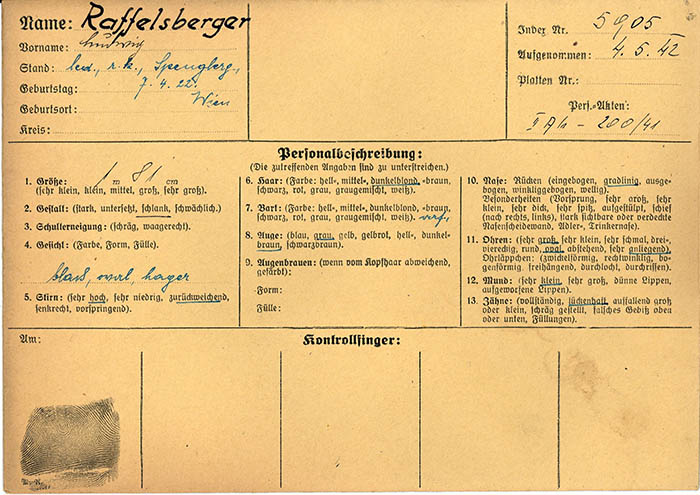 Name: Raffelsberger
Vorname: Ludwig
Stand: led., r.k., Spenglerg.,
Geburtstag: 7.4.22.
Geburtsort: Wien
Kreis:
Index Nr. 5905
Aufgenommen: 4.5.42
Platten Nr.:
Pers.-Akten:
II A/1 - 200/41
Personalbeschreibung:
(Die zutreffenden Angaben sind zu unterstreichen.)
1. Größe: 1 m 81 cm
(sehr klein, klein, mittel, groß, sehr groß).
2. Gestalt: (stark, untersetzt, schlank, schwächlich).
3. Schulterneigung: (schräg, waagerecht).
4. Gesicht: (Farbe, Form, Fülle).
blaß, oval, hager
5. Stirn: (sehr hoch, sehr niedrig, zurückweichend,
senkrecht, vorspringend).
6. Haar: (Farbe: hell-, mittel-, dunkelblond, -braun,
schwarz, rot, grau, graugemischt, weiß).
7. Bart: (Farbe: hell-, mittel-, dunkelblond, -braun,
schwarz, rot, grau, graugemischt, weiß).
8. Auge: (blau, grau, gelb, gelbrot, hell-, dunkel-
braun, schwarzbraun).
9. Augenbrauen: (wenn vom Kopfhaar abweichend,
gefärbt):
Form:
Fülle:
10. Nase: Rücken (eingebogen, gradlinig, ausge-
bogen, winkliggebogen, wellig).
Besonderheiten (Vorsprung, sehr groß, sehr
klein, sehr dick, sehr spitz, aufgestülpt, schief
(nach rechts, links), stark sichtbare oder verdeckte
Nasenscheidewand, Adler-, Trinkernase).
11. Ohren: (sehr groß, sehr klein, sehr schmal, drei-,
viereckig, rund, oval, abstehend, sehr anliegend).
Ohrläppchen: (zwickelförmig, rechtwinklig, bo-
genförmig, freihängend, durchlocht, durchrissen).
12. Mund: (sehr klein, sehr groß, dünne Lippen,
aufgeworfene Lippen).
13. Zähne: (vollständig, lückenhaft, auffallend groß
oder klein, schräg gestellt, falsches Gebiß oben
oder unten, Füllungen).
Am:
Kontrollfinger: